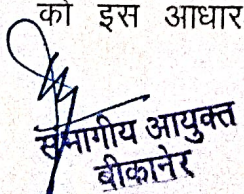 को इस आधार
संभागीय आयुक्त
बीकानेर